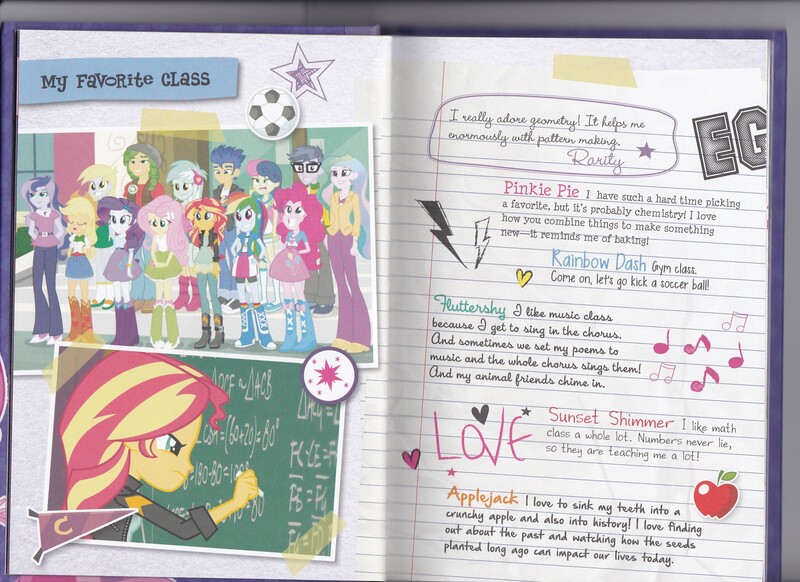 My Favorite Class
I really adore geometry! It helps me
enormously with pattern making.
Rarity
EG
Pinkie Pie I have such a hard time picking
a favorite, but it's probably chemistry! I love
how you combine things to make something
new—it reminds me of baking!
Rainbow Dash Gym class.
Come on, let's go kick a soccer ball!
Fluttershy I like music class
because I get to sing in the chorus.
And sometimes we set my poems to
music and the whole chorus sings them!
And my animal friends chime in.
LOVE
Sunset Shimmer I like math
class a whole lot. Numbers never lie,
so they are teaching me a lot!
Applejack I love to sink my teeth into a
crunchy apple and also into history! I love finding
out about the past and watching how the seeds
planted long ago can impact our lives today.
C